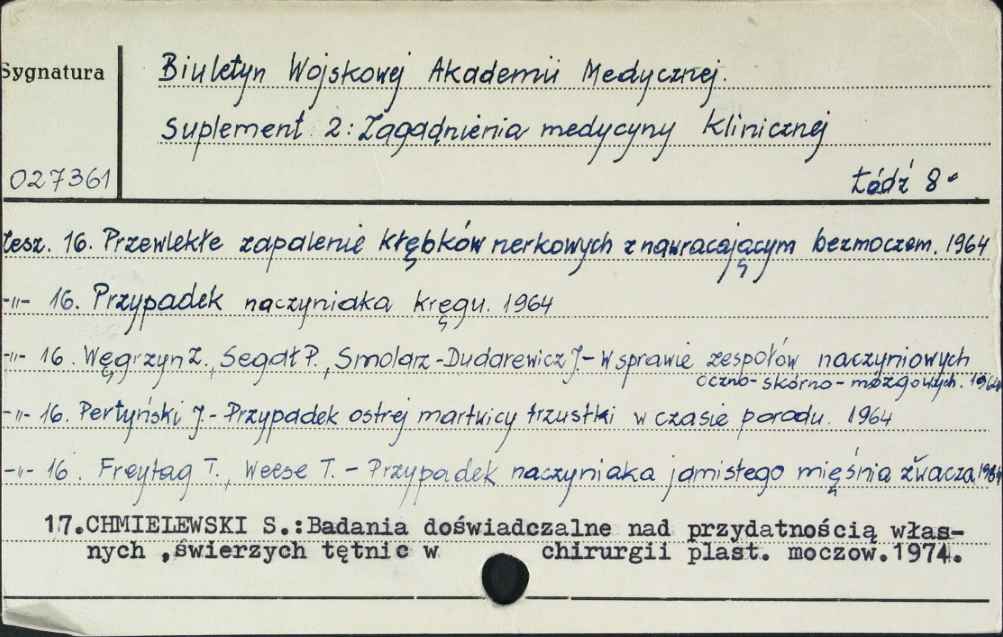 Sygnatura
Biuletyn Wojskowej Akademii Medycznej.
Suplement 2: Zagadnienia medycyny klinicznej
027361
Łódź 8°
zesz. 16. Przewlekłe zapalenie kłębków nerkowych z nawracającym bezmoczem. 1964
-"- 16. Przypadek naczyniaka kręgu. 1964
-"- 16. Węgrzyn Z., Segał P., Smolarz-Dudarewicz J. - W sprawie zespołów naczyniowych
oczno-skórno-mózgowych. 1964
-"- 16. Pertyński J. - Przypadek ostrej martwicy trzustki w czasie porodu. 1964
-"- 16. Freytag T., Weese T. - Przypadek naczyniaka jamistego mięśnia żwacza 1964
17.CHMIELEWSKI S.:Badania doświadczalne nad przydatnością włas-
nych ,świerzych tętnic w chirurgii plast. moczow.1974.